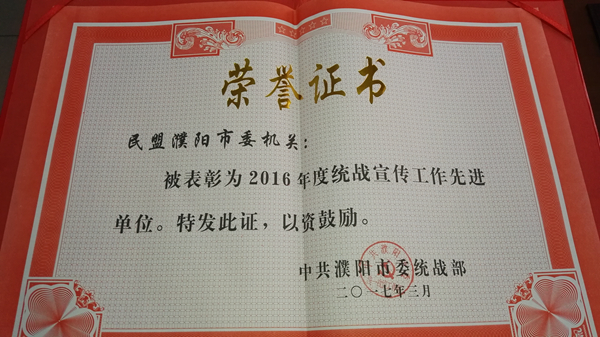 荣誉证书
民盟濮阳市委机关：
被表彰为2016年度统战宣传工作先进
单位。特发此证，以资鼓励。
中共濮阳市委统战部
二〇一七年三月